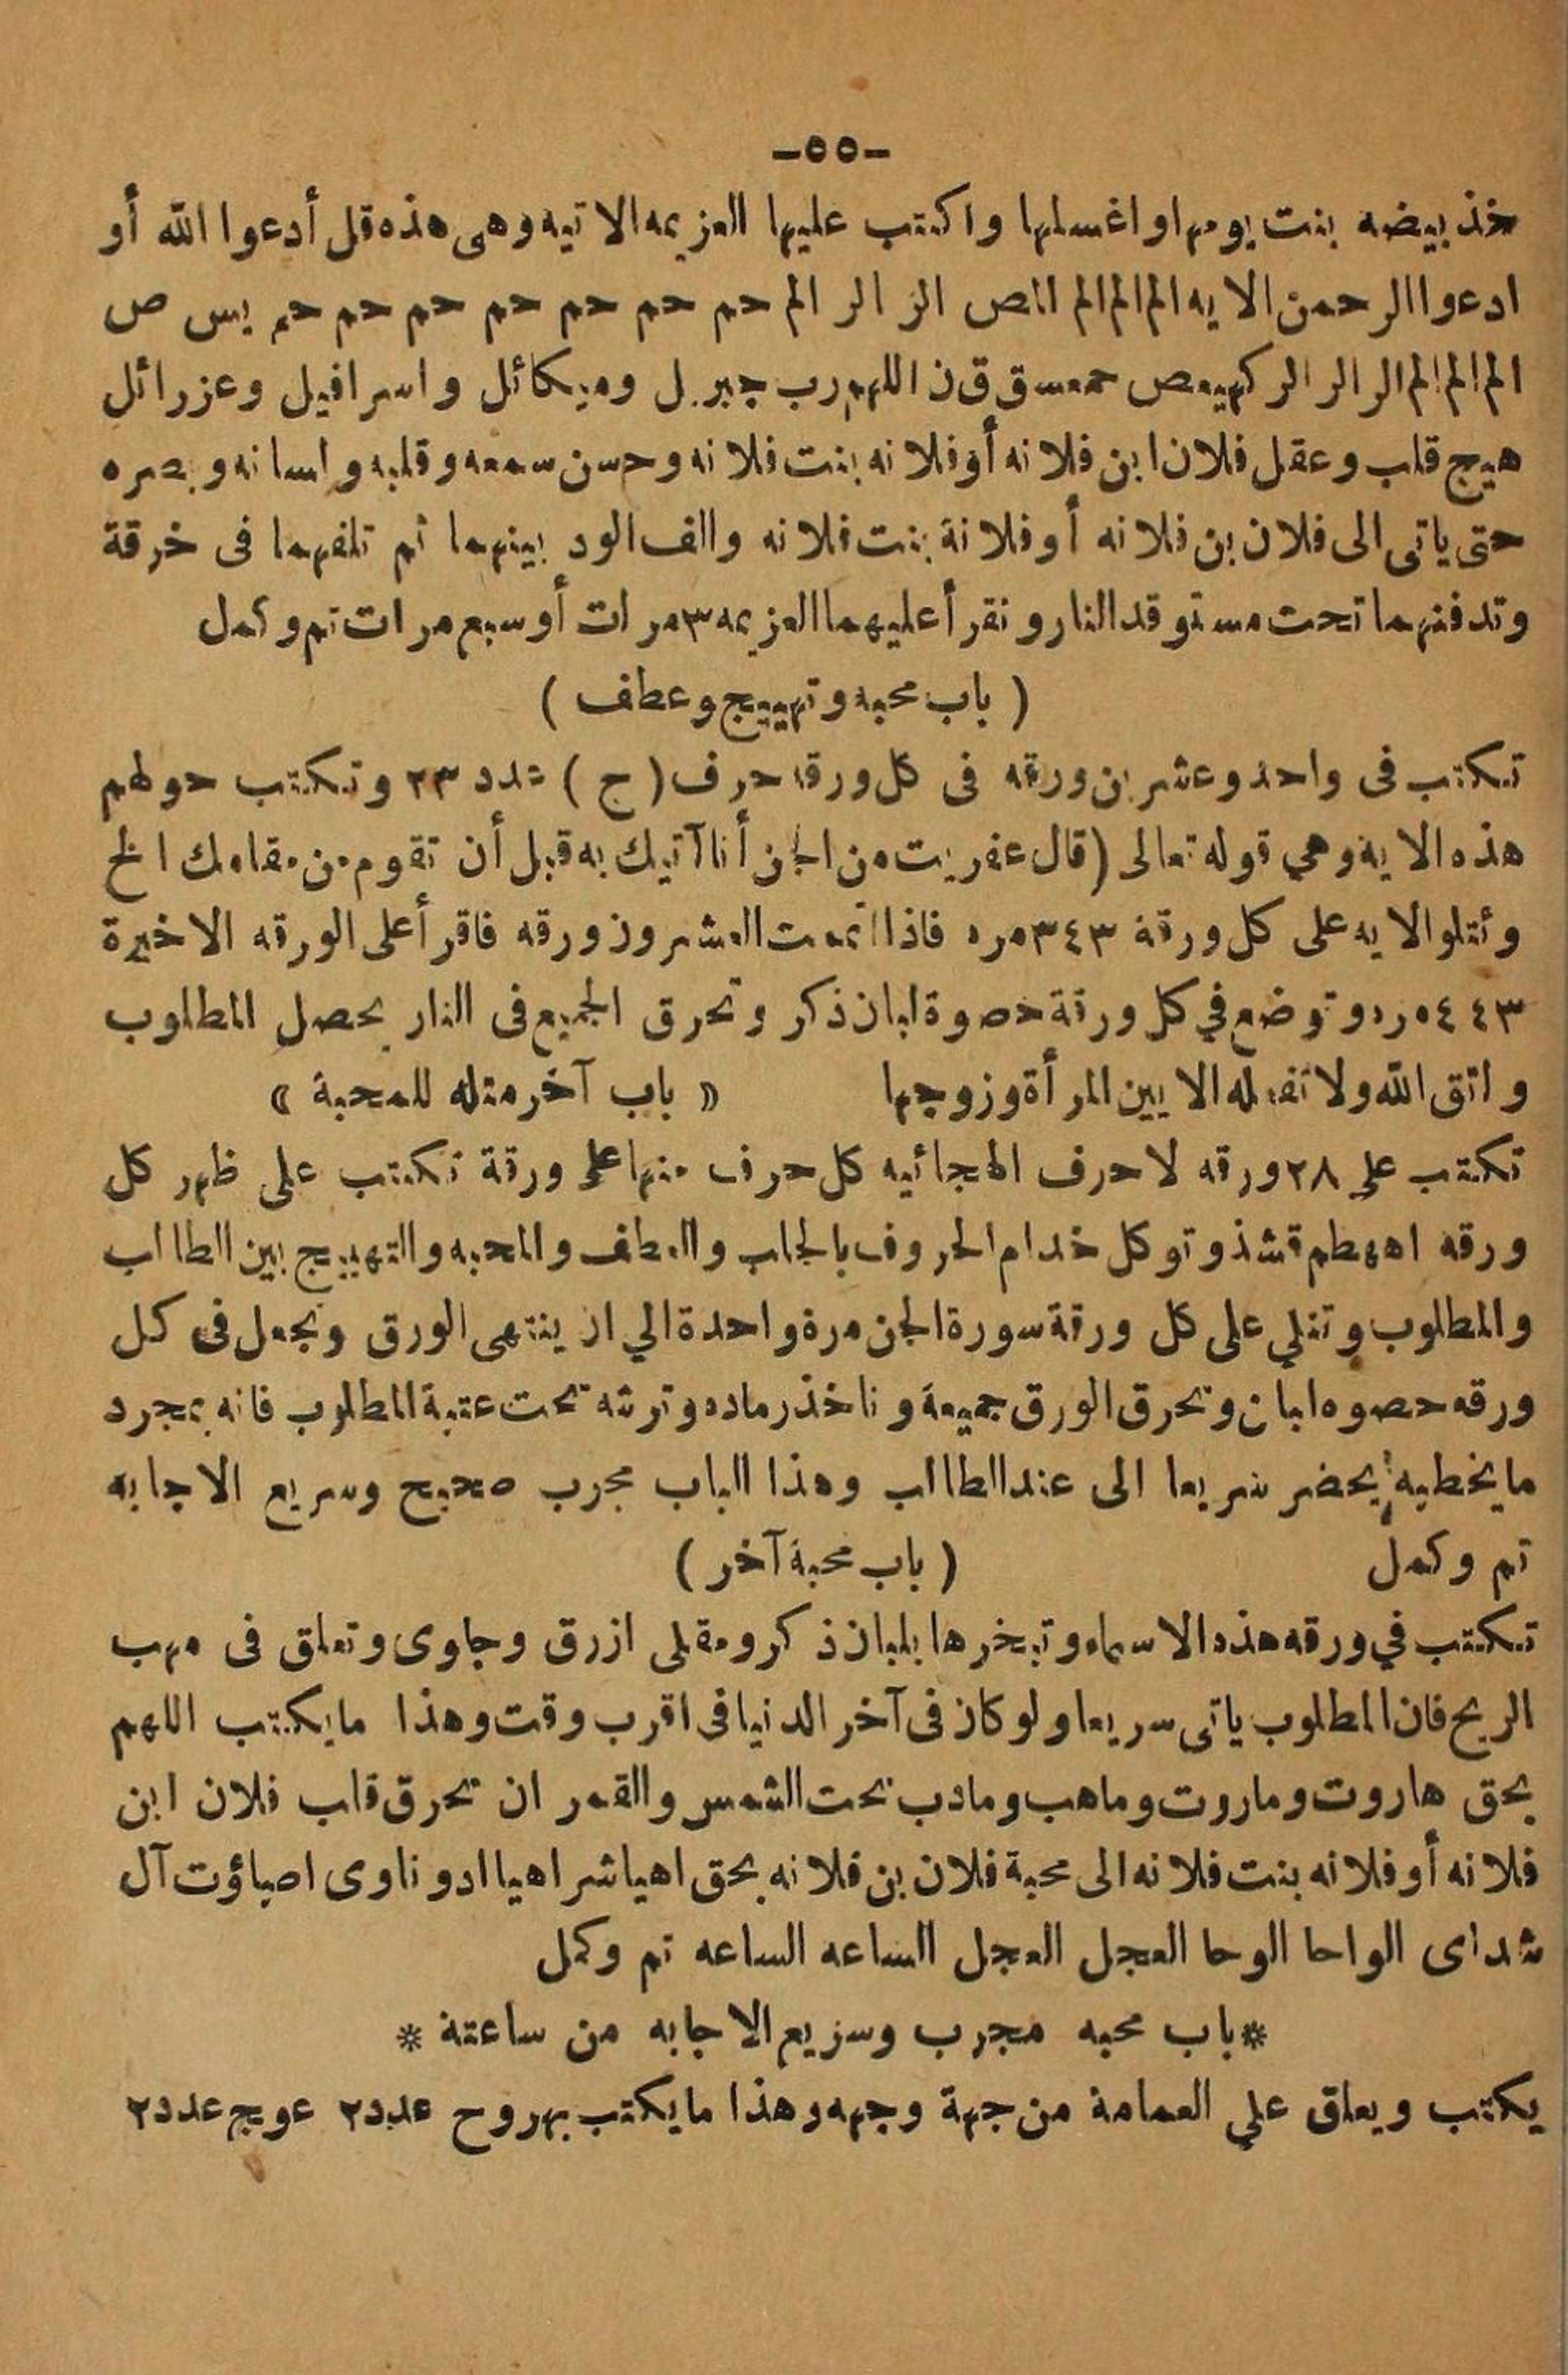 -٥٥-
خذ بيضه بنت يومها واغسلها واكتب عليها العزيمه الاتيه وهى هذه قل أدعوا الله أو
ادعوا الرحمن الايه الم الم الم المص الر الر الم حم حم حم حم حم حم حم يس ص
الم الم الم الر الر الر كهيعص حمعسق ق ن اللهم رب جبريل وميكائل واسرافيل وعزرائل
هيج قلب وعقل فلان ابن فلانه أو فلانه بنت فلانه وحسن سمعه وقلبه ولسانه وبصره
حتى ياتى الى فلان بن فلانه أو فلانة بنت فلانه والف الود بينهما ثم تلفهما فى خرقة
وتدفنهما تحت مستوقد النار ونقرأ عليهما العزيمه ٣ مرات أو سبع مرات تم وكمل
( باب محبه وتهييج وعطف )
تكتب فى واحد وعشرين ورقه فى كل ورقه حرف ( ج ) عدد ٢٣ وتكتب حولهم
هذه الاية وهي قوله تعالى (قال عفريت من الجن أنا آتيك به قبل أن تقوم من مقامك الخ
وتتلو الايه على كل ورقة ٣٤٣ مره فاذا اتممت العشرون ورقه فاقرأ على الورقه الاخيرة
٤٤٣ مره وتوضع في كل ورقة حصوة لبان ذكر وتحرق الجميع فى النار يحصل المطلوب
واتق الله ولا تفعله الا بين المرأة وزوجها « باب آخر مثله للمحبة »
تكتب على ٢٨ ورقه لاحرف الهجائيه كل حرف منها على ورقة تكتب على ظهر كل
ورقه اههطم قشذ وتوكل خدام الحروف بالجلب والعطف والمحبه والتهييج بين الطالب
والمطلوب وتتلي على كل ورقة سورة الجن مرة واحدة الي ان ينتهى الورق وتجعل فى كل
ورقه حصوه لبان وتحرق الورق جميعة وناخذ رماده وترشه تحت عتبة المطلوب فانه بمجرد
ما يخطيه يحضر سريعا الى عند الطالب وهذا الباب مجرب صحيح وسريع الاجابه
تم وكمل ( باب محبة آخر )
تكتب في ورقه هذه الاسماء وتبخرها بلبان ذكر ومقلى ازرق وجاوى وتعلق فى مهب
الريح فان المطلوب ياتى سريعا ولو كان فى آخر الدنيا فى اقرب وقت وهذا ما يكتب اللهم
بحق هاروت وماروت وماهب ومادب تحت الشمس والقمر ان تحرق قلب فلان ابن
فلانه أو فلانه بنت فلانه الى محبة فلان بن فلانه بحق اهيا شراهيا ادوناوى اصباؤت آل
شداى الواحا الوحا العجل العجل الساعه الساعه تم وكمل
*باب محبه مجرب وسزيع الاجابه من ساعتة *
يكتب ويعلق علي العمامة من جهة وجهه وهذا ما يكتب بهروح عدد ٢ عويج عدد ٢